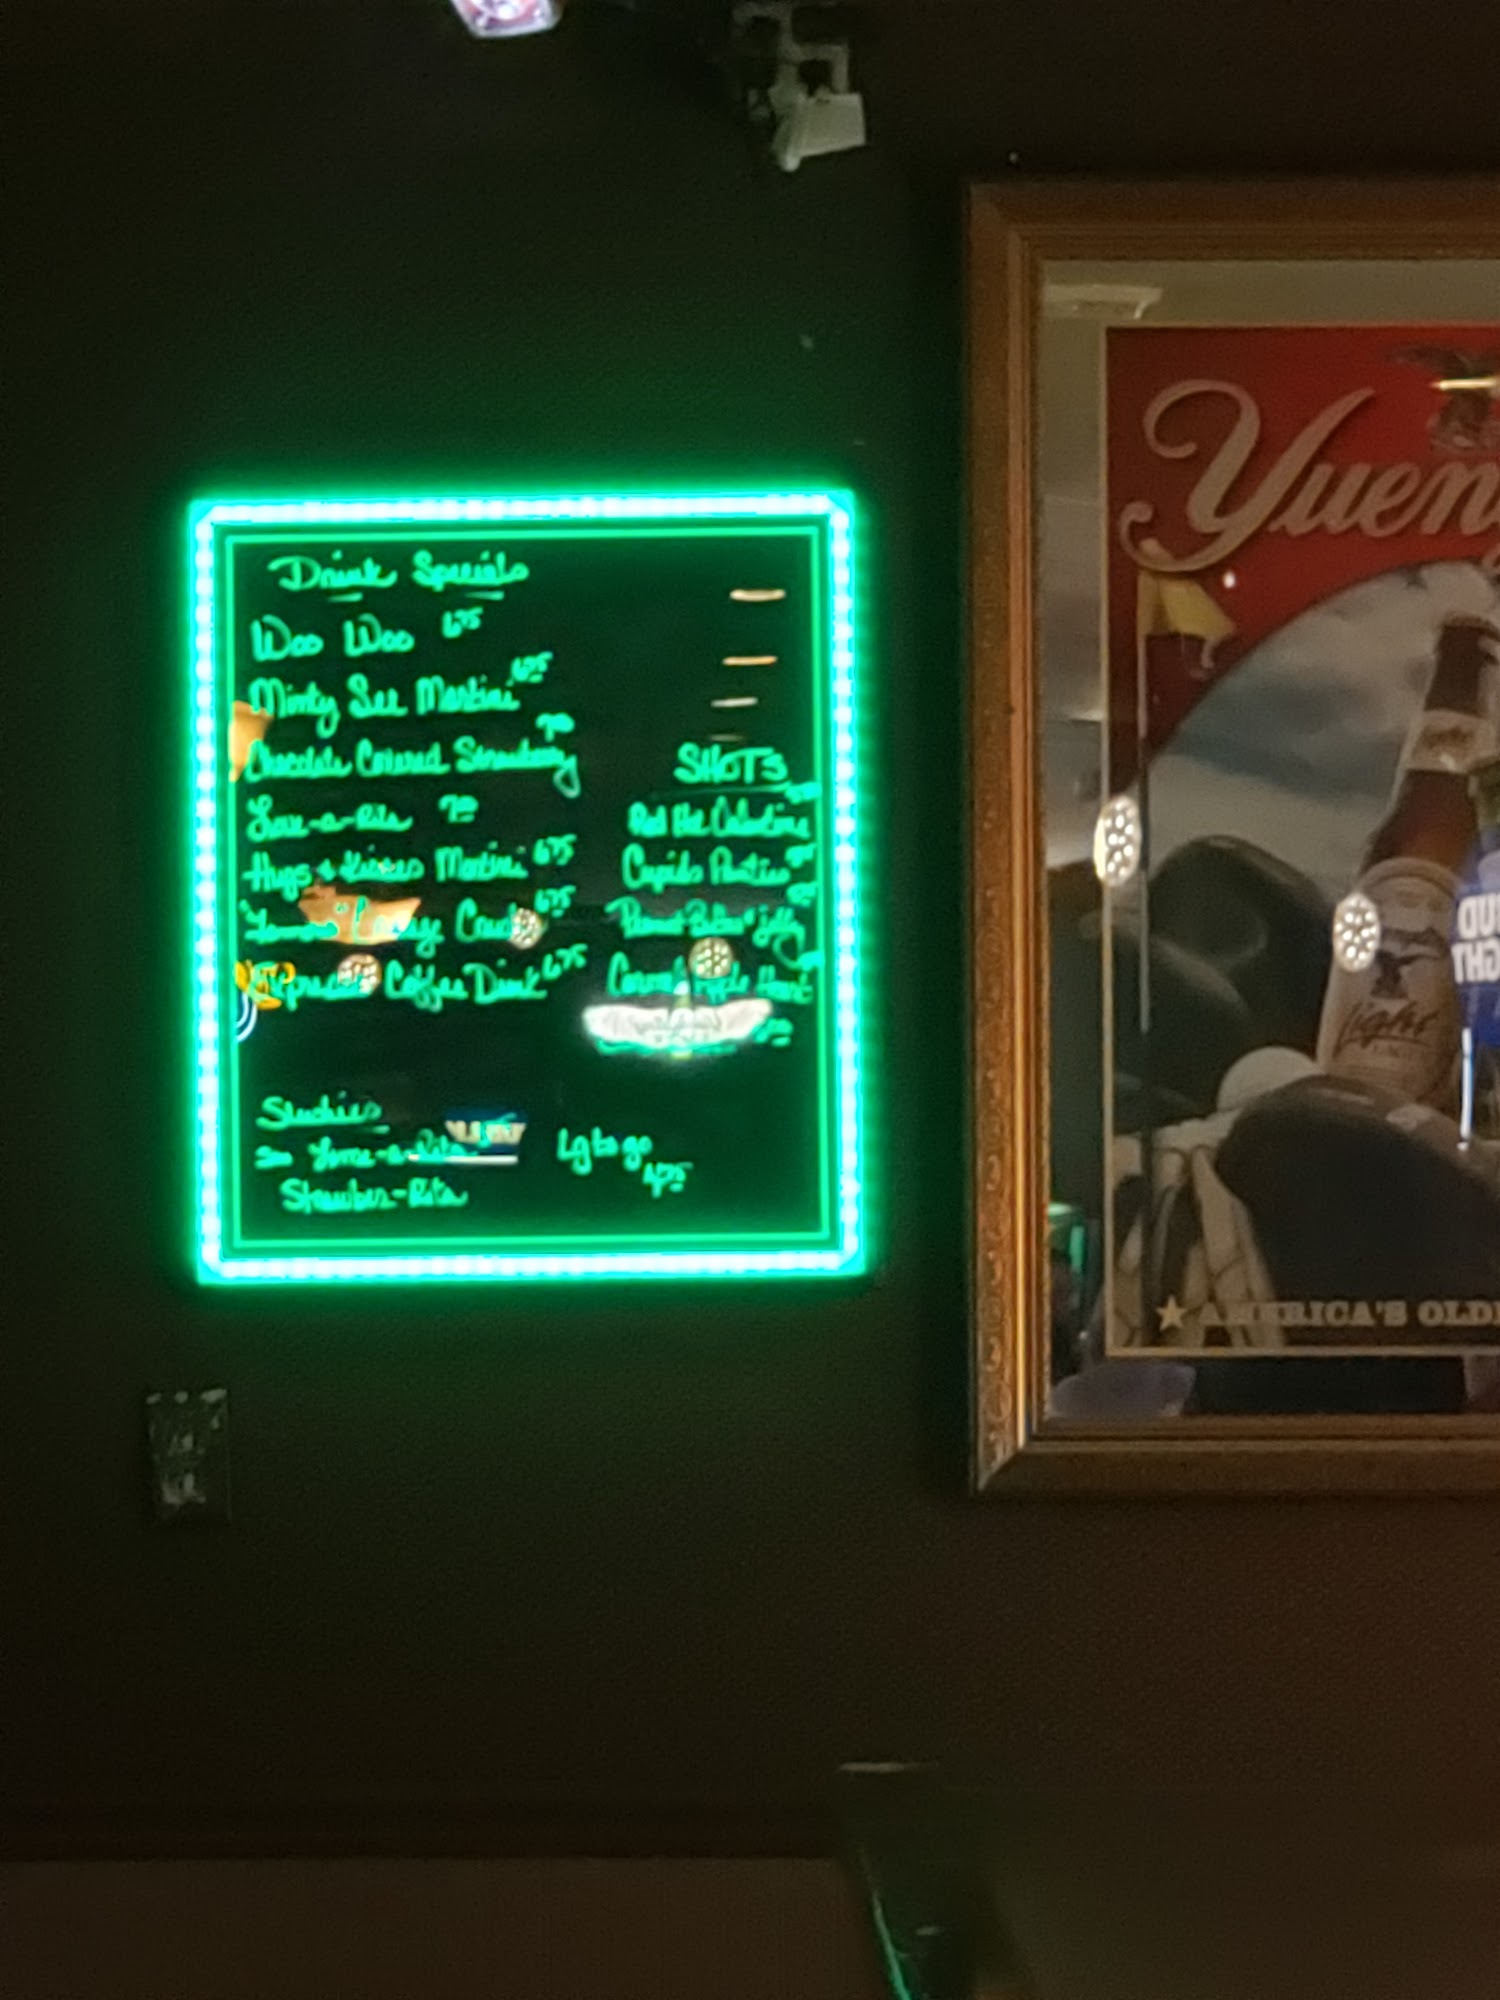 Drink Specials
Woo Woo 6.75
Minty See Martini 6.75
Chocolate Covered Strawberry 7.00
Love-a-Rita 7.00
Hugs & Kisses Martini 6.75
"Famous" Candy Crush 6.75
Espresso Coffee Drink 6.75
SHOTS
Red Hot Valentine
Cupids Panties
Peanut Butter Jelly
Caramel Apple Heart
Slushies
Love-a-Rita
Strawber-Rita
Lg to go
Yueng
Light
★ AMERICA'S OLD
BUD
LIGHT